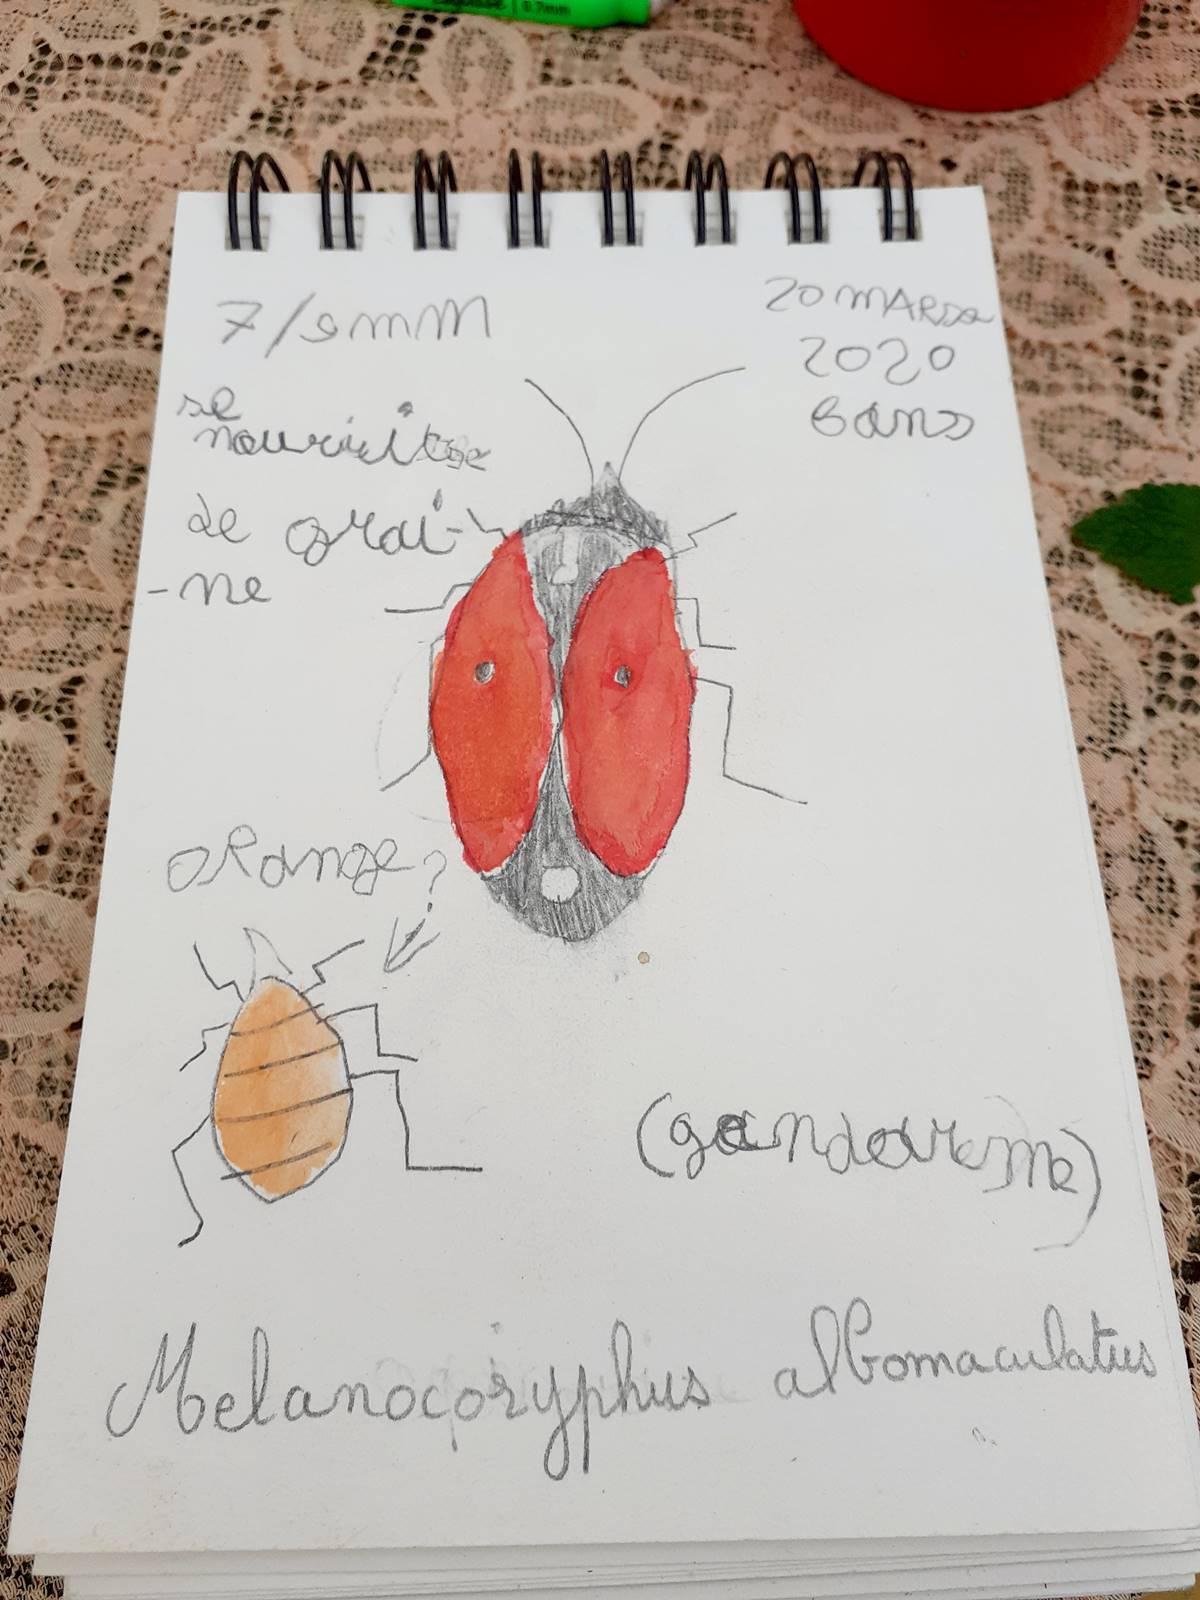 0.7mm
7/9mm
20 MARSe
2020
Bans
se
nouriit
de grai-
-ne
ORange?
(gandareme)
Melanocoryphus albomaculatus